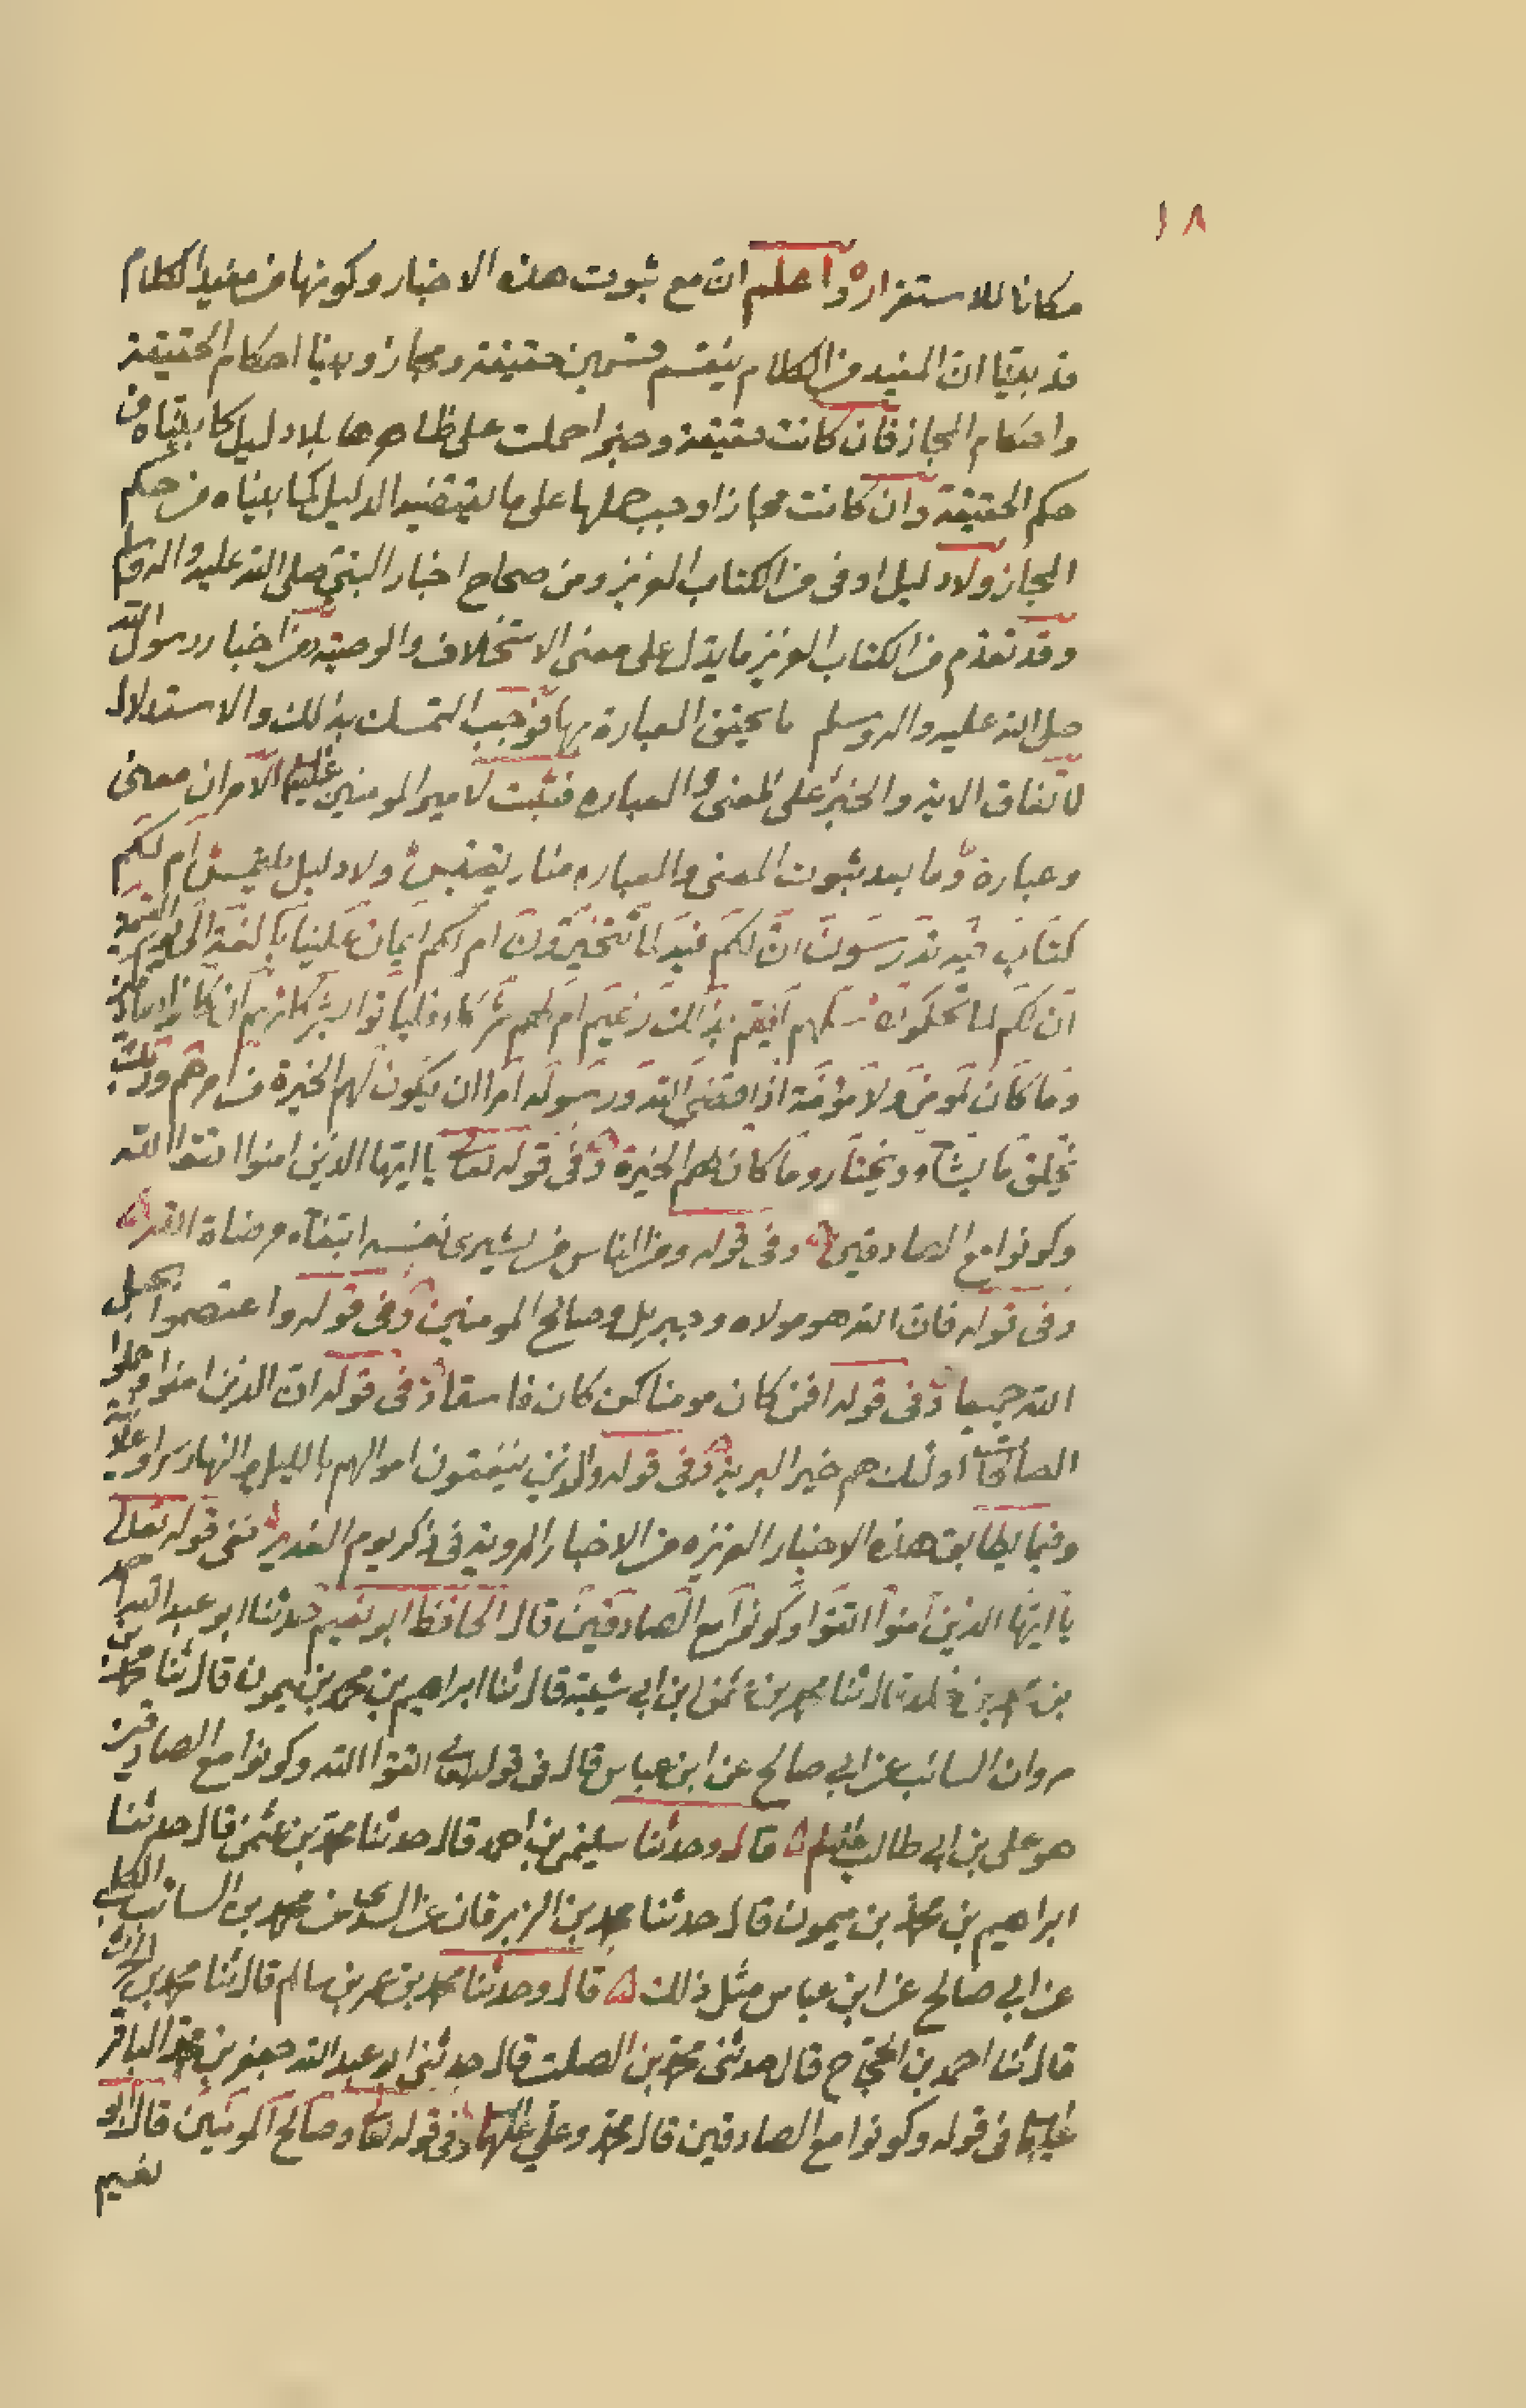 ١٨
مكانا للاستقراره واعلم ان مع ثبوت هذه الاخبار وكونها من مفيد الكلام
قد بينا ان المفيد من الكلام ينقسم قسمين حقيقة ومجاز وبينا احكام الحقيقة
واحكام المجاز فان كانت حقيقة وخبرا حملت على ظاهرها بلا دليل كما بيناه من
حكم الحقيقة وان كانت مجازا وجب حملها على ما يقتضيه الدليل كما بيناه من حكم
المجاز ولا دليل اوفى من الكتاب العزيز ومن صحاح اخبار النبي صلى الله عليه واله وسلم
وقد تقدم من الكتاب العزيز ما يدل على معنى الاستخلاف والوصية ومن اخبار رسول الله
صلى الله عليه واله وسلم ما يحقق العبارة بها فوجب التمسك بذلك والاستدلال
لاتفاق الاية والخبر على المعنى والعبارة فثبت لامير المومنين عليه السلم الامران معنى
وعبارة وما بعد ثبوت المعنى والعباره منار يقتبس ولا دليل يلتمس ام لكم
كتاب فيه تدرسون ان لكم فيه لما تخيرون ام لكم ايمان علينا بالغة الى يوم القيمة
ان لكم لما تحكمون سلهم ايهم بذلك زعيم ام لهم شركاء فلياتوا بشركائهم ان كانوا صادقين
وما كان لمومن ولا مؤمنة اذا قضى الله ورسوله امرا ان يكون لهم الخيرة من امرهم وربك
يخلق ما يشاء ويختار وما كان لهم الخيرة وفى قوله تعالى يا ايها الذين امنوا اتقوا الله
وكونوا مع الصادقين وفى قوله ومن الناس من يشرى نفسه ابتغاء مرضاة الله
وفى قوله فان الله هو مولاه وجبريل وصالح المومنين وفى قوله واعتصموا بحبل
الله جميعا وفى قوله افمن كان مومنا كمن كان فاسقا وفى قوله ان الذين امنوا وعملوا
الصالحات اولئك هم خير البرية وفى قوله والذين ينفقون اموالهم بالليل والنهار سرا وعلانية
وفيما يطابق هذه الاخبار العزيزه من الاخبار المروية فى ذكر يوم الغدير ففى قوله تعالى
يا ايها الذين امنوا اتقوا وكونوا مع الصادقين قال الحافظ ابو نعيم حدثنا ابو عبد الله محمد
بن احمد بن مخلد قال ثنا محمد بن عثمن ابن ابى شيبة قال ثنا ابراهيم بن محمد بن ميمون قال ثنا محمد بن
مروان السائب عن ابى صالح عن ابن عباس قال فى قوله تعالى اتقوا الله وكونوا مع الصادقين
هو على بن ابى طالب عليه السلم قال وحدثنا سليمن بن احمد قال حدثنا محمد بن عثمن قال حدثنا
ابراهيم بن محمد بن ميمون قال حدثنا محمد بن الزبرقان عن السدى عن محمد بن السائب الكلبى
عن ابى صالح عن ابن عباس مثل ذلك قال وحدثنا محمد بن عمر بن سالم قال ثنا محمد بن الحارث
قال ثنا احمد بن الحجاج قال حدثنى محمد بن الصلت قال حدثنى ابى عبد الله جعفر بن محمد الباقر
عليهما السلم فى قوله وكونوا مع الصادقين قال محمد وعلي عليهما السلم وفى قوله تعالى وصالح المومنين قال ابو
نعيم